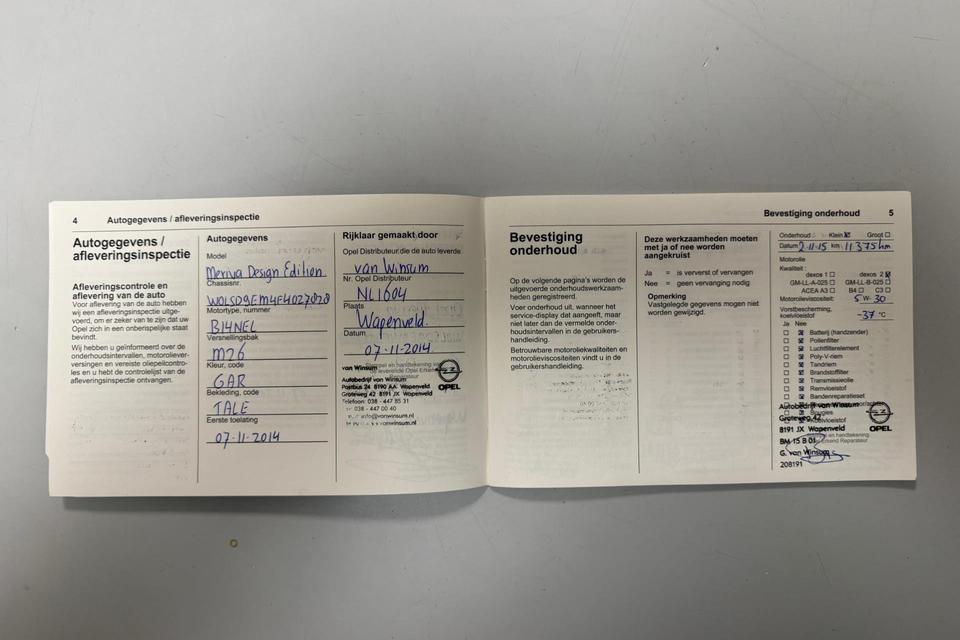 4 Autogegevens / afleveringsinspectie
Autogegevens /
afleveringsinspectie
Afleveringscontrole en
aflevering van de auto
Voor aflevering van de auto hebben
wij een afleveringsinspectie uitge-
voerd, om er zeker van te zijn dat uw
Opel zich in een onberispelijke staat
bevindt.
Wij hebben u geïnformeerd over de
onderhoudsintervallen, motoroliever-
versingen en vereiste oliepeilcontro-
les en u hebt de controlelijst van de
afleveringsinspectie ontvangen.
Autogegevens
Model
Meriva Design Edition
Chassisnr.
W0LSD9EM4E4027020
Motortype, nummer
B14NEL
Versnellingsbak
M26
Kleur, code
GAR
Bekleding, code
TALE
Eerste toelating
07-11-2014
Rijklaar gemaakt door
Opel Distributeur die de auto leverde
van Winsum
Nr. Opel Distributeur
NL1604
Plaats
Wapenveld.
Datum
07-11-2014
van Winsum
Autobedrijf van Winsum
Postbus 24 8190 AA Wapenveld
Groteweg 42 8191 JX Wapenveld
Telefoon: 038 - 447 85 31
038 - 447 00 40
info@vanwinsum.nl
vanwinsum.nl
OPEL
Bevestiging onderhoud 5
Bevestiging
onderhoud
Op de volgende pagina's worden de
uitgevoerde onderhoudswerkzaam-
heden geregistreerd.
Voer onderhoud uit, wanneer het
service-display dat aangeeft, maar
niet later dan de vermelde onder-
houdsintervallen in de gebruikers-
handleiding.
Betrouwbare motoroliekwaliteiten en
motorolieviscositeiten vindt u in de
gebruikershandleiding.
Deze werkzaamheden moeten
met ja of nee worden
aangekruist
Ja = is ververst of vervangen
Nee = geen vervanging nodig
Opmerking
Vastgelegde gegevens mogen niet
worden gewijzigd.
Onderhoud Klein Groot
Datum 2-11-15 km 11375 km
Motorolie
Kwaliteit:
dexos 1 dexos 2
GM-LL-A-025 GM-LL-B-025
ACEA A3 B4 C3
Motorolieviscositeit: 5 W- 30
Vorstbescherming,
koelvloeistof -37 °C
Ja Nee
Batterij (handzender)
Pollenfilter
Luchtfilterelement
Poly-V-riem
Tandriem
Brandstoffilter
Transmissieolie
Remvloeistof
Bandenreparatieset
Autobedrijf van Winsum
Bougies
Groteweg 42
Koelvloeistof
8191 JX Wapenveld
OPEL
BM 15 B 01
G. van Winsum
208191